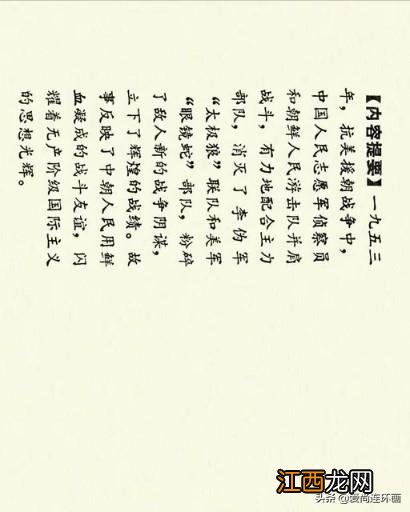 【内容提要】一九五三
年，抗美援朝战争中，
中国人民志愿军侦察员
和朝鲜人民游击队并肩
战斗，有力地配合主力
部队，消灭了李伪军
“太极狼”联队和美军
“眼镜蛇”部队，粉碎
了敌人新的战争阴谋，
立下了辉煌的战绩。故
事反映了中朝人民用鲜
血凝成的战斗友谊，闪
耀着无产阶级国际主义
的思想光辉。
江西龙网
头条 @爱尚连环画